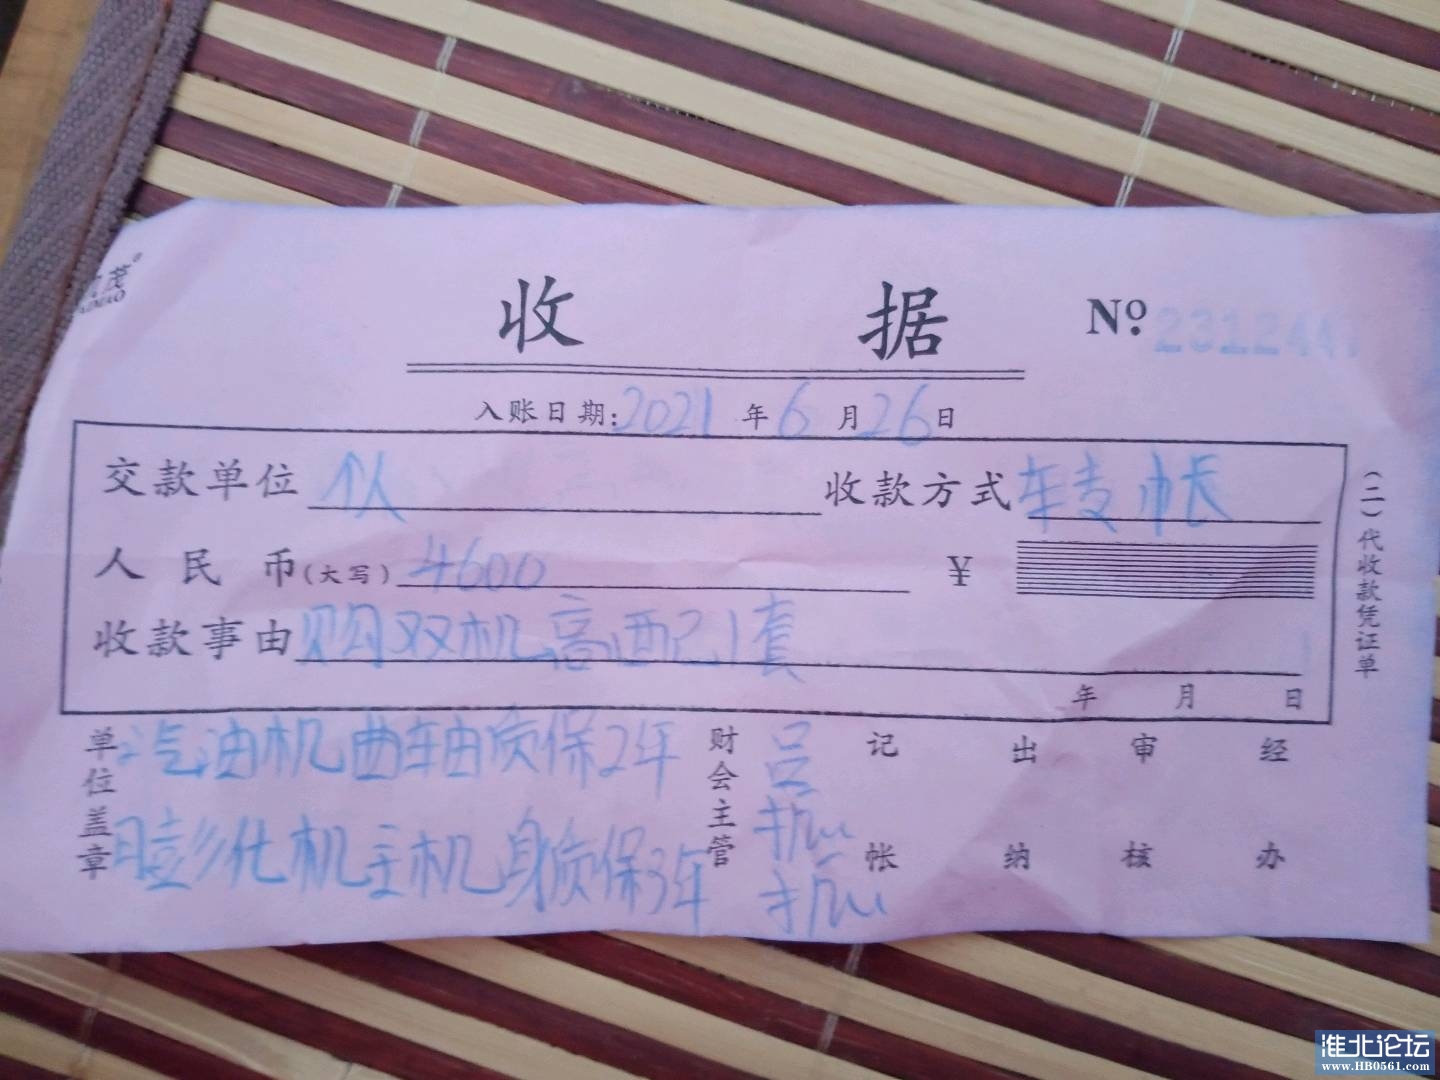 茂
收 据 No. 2312447
入账日期:2021年6月26日
交款单位 个人 收款方式 转帐
人民币(大写) 4600 ¥
收款事由 购双机高配1套
年 月 日
(二)代收款凭证单
单位盖章 财会主管 吕振振 记帐 出纳 审核 经办
汽油机曲轴质保2年
膨化机主机身质保3年
淮北论坛
www.HB0561.com